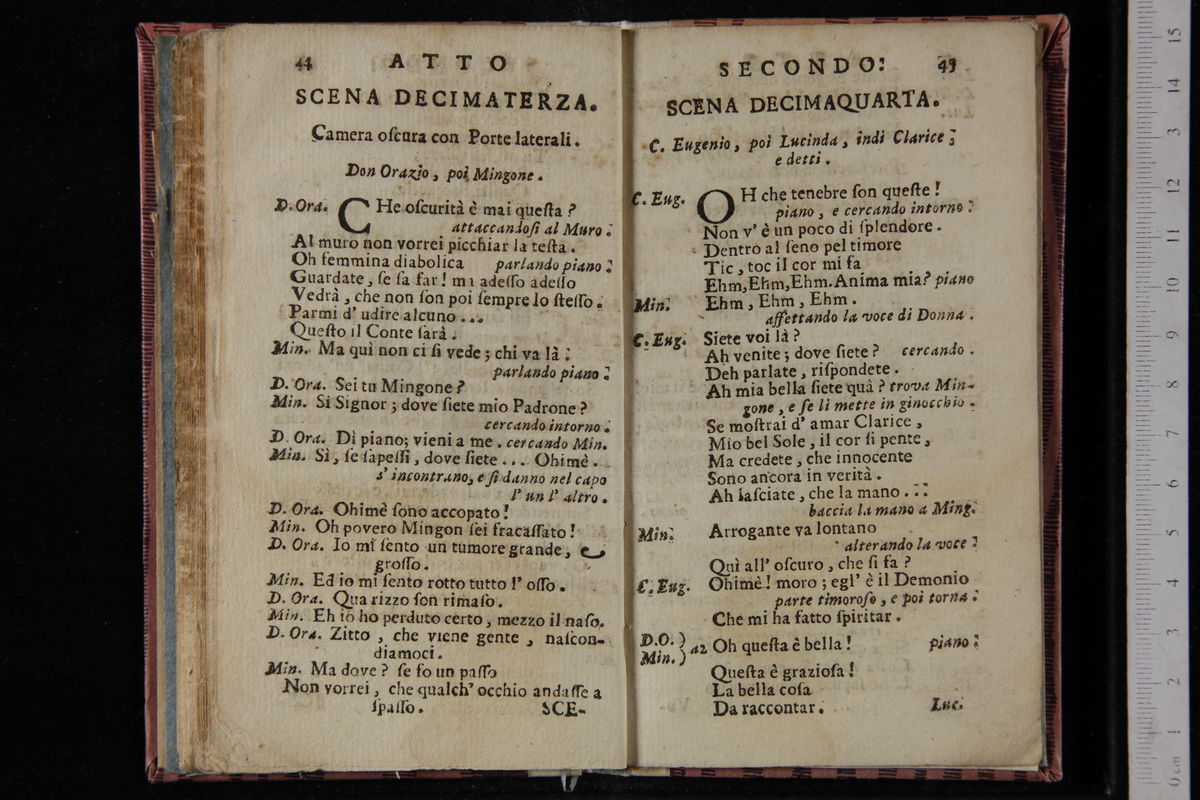 44 ATTO
SCENA DECIMATERZA.
Camera oſcura con Porte laterali.
Don Orazio, poi Mingone.
D. Ora. CHe oſcurità è mai queſta?
attaccandoſi al Muro.
Al muro non vorrei picchiar la teſta.
Oh femmina diabolica parlando piano.
Guardate, ſe ſa far! ma adeſſo adeſſo
Vedrà, che non ſon poi ſempre lo ſteſſo.
Parmi d' udire alcuno...
Queſto il Conte ſarà.
Min. Ma quì non ci ſi vede; chi va là.
parlando piano.
D. Ora. Sei tu Mingone?
Min. Si Signor; dove ſiete mio Padrone?
cercando intorno.
D. Ora. Dì piano; vieni a me. cercando Min.
Min. Sì, ſe ſapeſſi, dove ſiete... Ohimè.
s' incontrano, e ſi danno nel capo
l' un l' altro.
D. Ora. Ohimè ſono accopato!
Min. Oh povero Mingon ſei fracaſſato!
D. Ora. Io mi ſento un tumore grande,
groſſo.
Min. Ed io mi ſento rotto tutto l' oſſo.
D. Ora. Qua rizzo ſon rimaſo.
Min. Eh iò ho perduto certo, mezzo il naſo.
D. Ora. Zitto, che viene gente, naſcon-
diamoci.
Min. Ma dove? ſe fo un paſſo
Non vorrei, che qualch' occhio andaſſe a
ſpaſſo. SCE-
SECONDO. 45
SCENA DECIMAQUARTA.
C. Eugenio, poi Lucinda, indi Clarice
e detti.
C. Eug. OH che tenebre ſon queſte!
piano, e cercando intorno.
Non v' è un poco di ſplendore.
Dentro al ſeno pel timore
Tic, toc il cor mi fa
Ehm, Ehm, Ehm. Anima mia? piano
Min. Ehm, Ehm, Ehm.
affettando la voce di Donna.
C. Eug. Siete voi là?
Ah venite; dove ſiete? cercando.
Deh parlate, riſpondete.
Ah mia bella ſiete quà? trova Min-
gone, e ſe li mette in ginocchio.
Se moſtrai d' amar Clarice,
Mio bel Sole, il cor ſi pente,
Ma credete, che innocente
Sono ancora in verità.
Ah laſciate, che la mano...
baccia la mano a Ming.
Min. Arrogante va lontano
alterando la voce
Quì all' oſcuro, che ſi fa?
C. Eug. Ohimè! moro; egl' è il Demonio
parte timoroſo, e poi torna.
Che mi ha fatto ſpiritar.
D.O. )
Min. ) a2 Oh queſta è bella! piano.
Queſta è grazioſa!
La bella coſa
Da raccontar. Luc.
15
14
13
12
11
10
9
8
7
6
5
4
3
2
1
0 cm